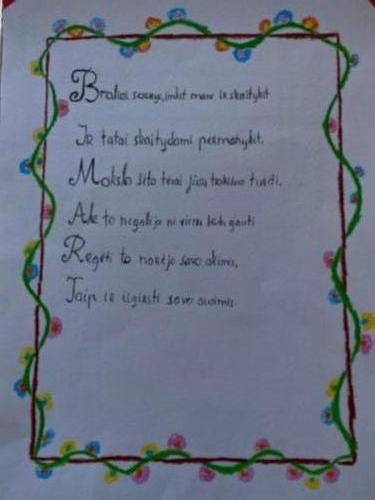 Broliai seserys, imkit mane ir skaitykit
Ir tatai skaitydami permanykit.
Mokslo šito tėvai jūsų trokšdavo turėti,
Ale to negalėjo ni vienu būdu gauti
Regėti to norėjo savo akimis,
Taip ir išgirsti savo ausimis.